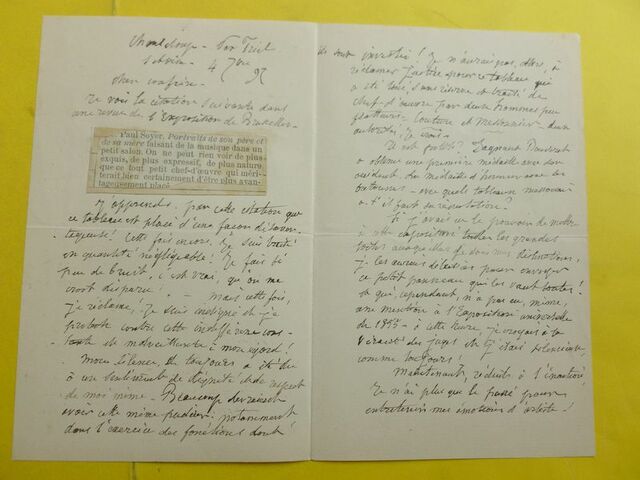 Chanteloup - par Triel
4 7bre 97
cher confrère
Je vois la citation suivante dans
une revue de l'Exposition de Bruxelles -
Paul Soyer. Portraits de son père et
de sa mère faisant de la musique dans un
petit salon. On ne peut rien voir de plus
exquis, de plus expressif, de plus nature
que ce tout petit chef-d'œuvre qui méri-
terait bien certainement d'être plus avan-
tageusement placé.
J'apprends, par cette citation que
ce tableau est placé d'une façon désavan-
tageuse! Cette fois encore, je suis traité
en quantité négligeable! Je fais si
peu de bruit, c'est vrai, qu'on me
croit disparu! - Mais cette fois,
je réclame, je suis indigné et je
proteste contre cette indifférence cons-
tante et malveillante à mon égard!
Mon silence, de toujours a été dû
à un sentiment de dignité et de respect
de moi même - Beaucoup devraient
avoir cette même pudeur, notamment
dans l'exercice des fonctions dont
ils sont investis! Je n'aurai pas, alors, à
réclamer justice pour ce tableau qui
a été loué, sans réserve et traité de
chef-d'œuvre par deux hommes peu
flatteurs - Couture et Meissonier - deux
autorités, je crois -
a obtenu une première médaille avec son
accident. Des médailles d'honneur avec les
- avec quels tableaux
a-t-il fait sa réputation?
Si j'avais eu le pouvoir de mettre
à cette exposition toutes les grandes
toiles auxquelles je dois mes distinctions,
je les aurais délaissées pour envoyer
ce petit panneau qui les vaut toutes!
et qui, cependant, n'a pas eu, même,
une mention à l'Exposition universelle
de - à cette heure je croyais à la
des juges et j'étais silencieux,
comme toujours!
Maintenant, réduit à l'inaction,
Je n'ai plus que le passé pour
entretenir mes émotions d'artiste!